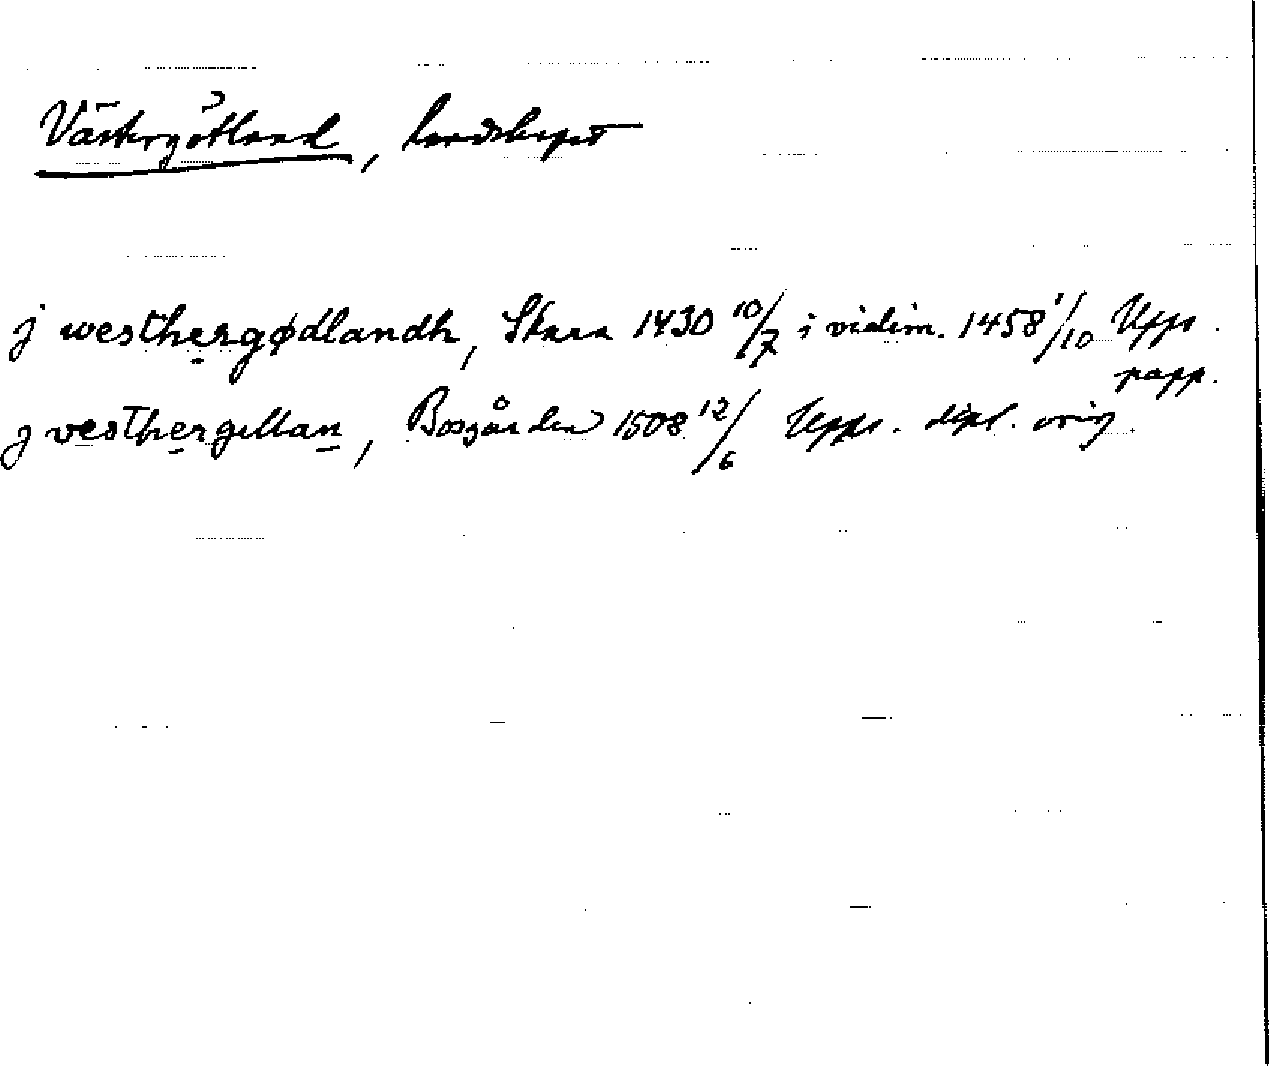 Västergötland, landskapet
j westhergødlandh, Skara 1430 10/7 i vidim. 1458 1/10 Upps.
papp.
j vesthergillan, Bosgården 1508 12/6 Upps. dipl. orig.